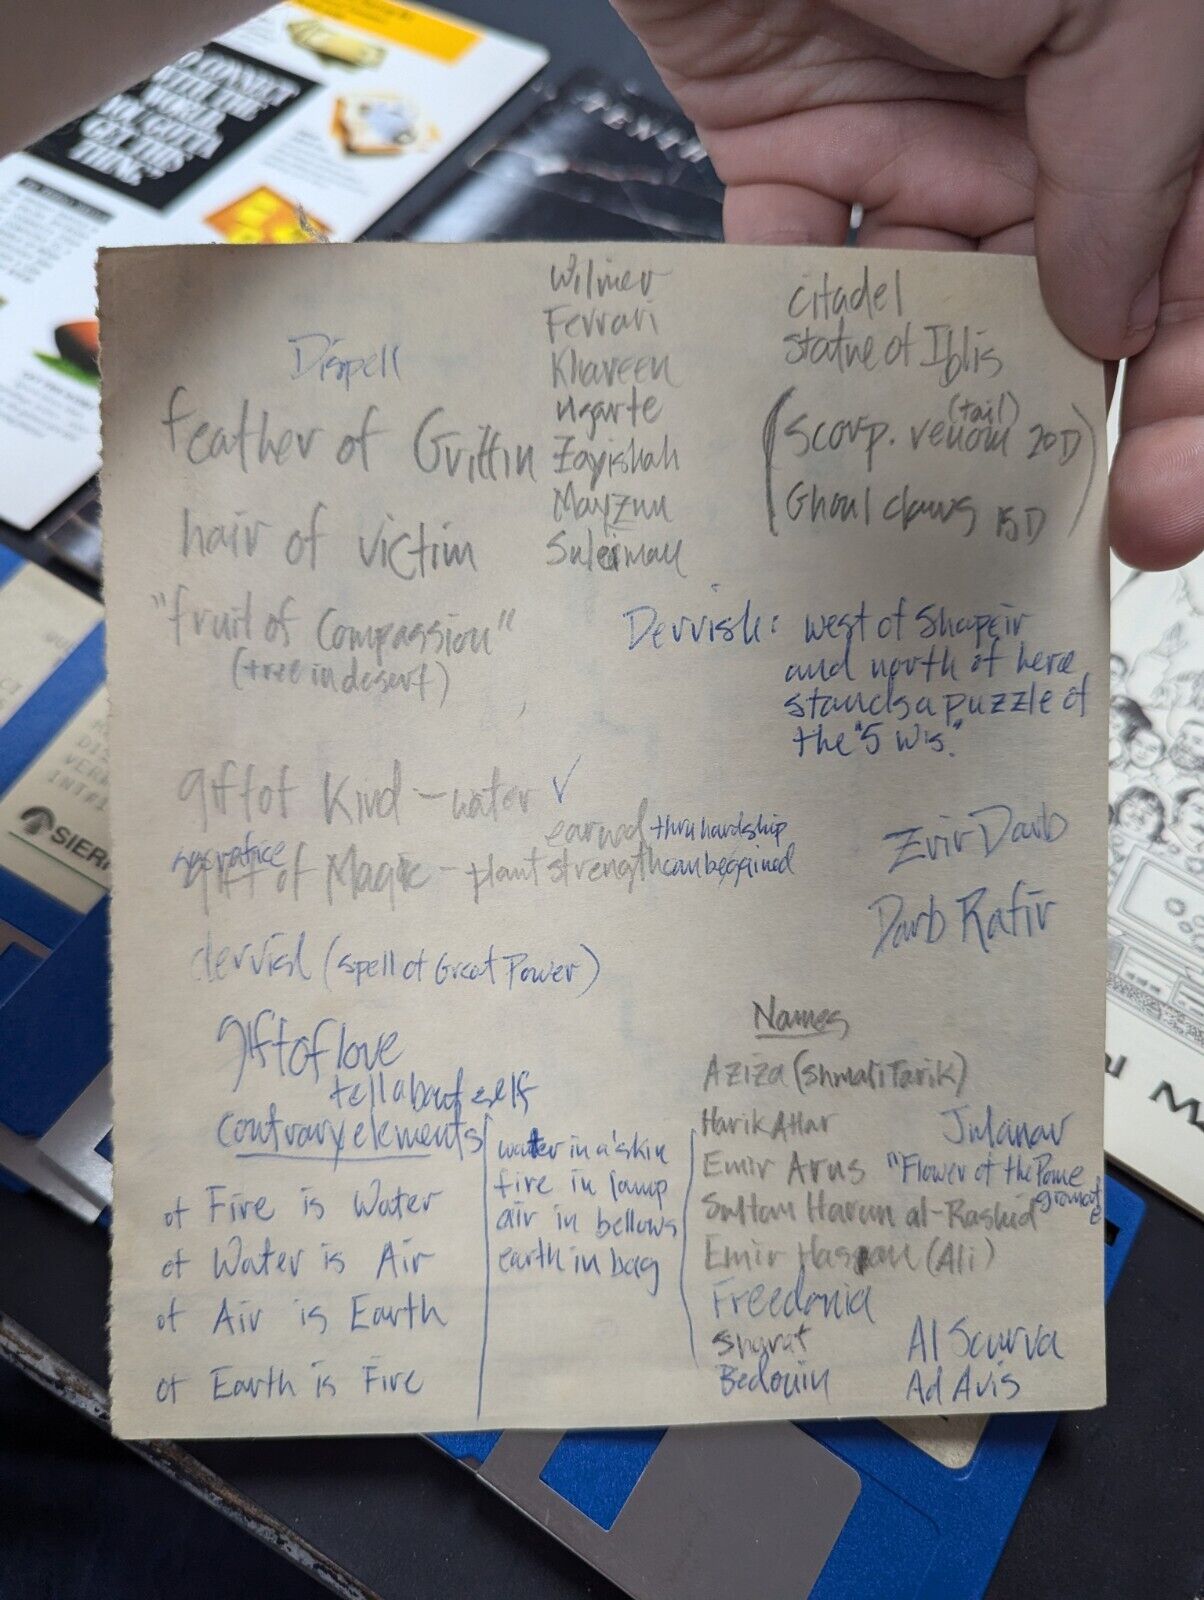 Dispell
feather of Griffin
hair of victim
"fruit of Compassion"
(tree in desert)
Wilmer
Ferrari
Khaveen
Ugarte
Zayishah
Mayzun
Suleiman
citadel
statue of Iblis
(tail)
Scorp. venom 20D
Ghoul claws 15D
Dervish: west of Shapeir
and north of here
stands a puzzle of
the "5 W's."
gift of Kind - water ✓
earned thru hardship
sacrafice
gift of Magic - plant strength can be gained
dervish (spell of Great Power)
Zrir Darb
Darb Rafir
gift of love
tell about self
contrary elements
of Fire is Water
of Water is Air
of Air is Earth
of Earth is Fire
water in a skin
fire in lamp
air in bellows
earth in bag
Names
Aziza (Shmali Tarik)
Harik Attar
Julanar
Emir Arus "Flower of the Pome
granate
Sultan Harun al-Rashid
Emir Hassan (Ali)
Freedonia
Sharaf
Bedouin
Al Scurva
Ad Avis
GET THIS
THING
SIERR